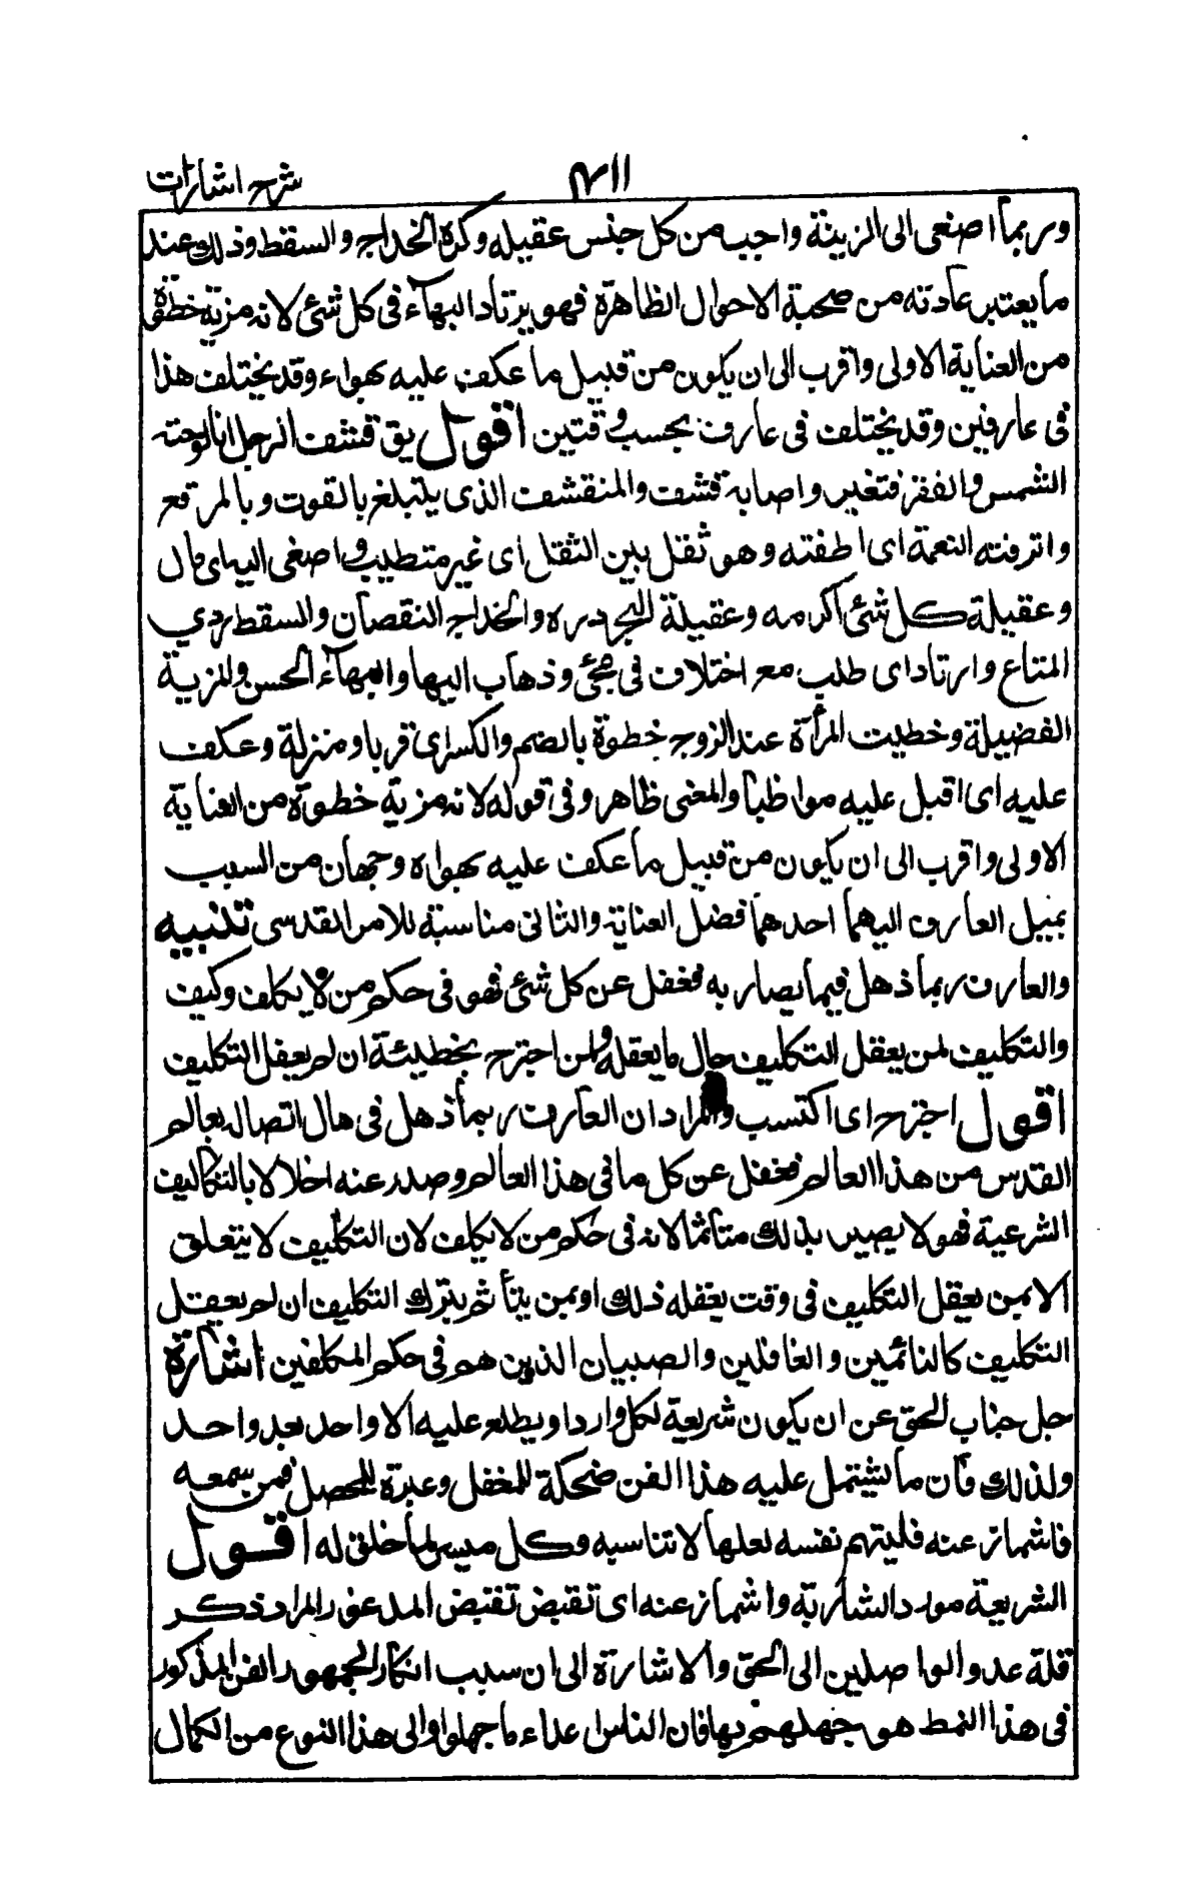 شرح اشارات
وربما اصغى الى الزينة واحب من كل جنس عقيله وكره الخداج والسقط وذلك عند
ما يعتبر عادته من صحبة الاحوال الظاهرة فهو يرتاد البهآء فى كل شئ لانه مزية خطوة
من العناية الاولى واقرب الى ان يكون من قبيل ما عكف عليه بهواء وقد يختلف هذا
فى عارفين وقد يختلف فى عارف بحسب وقتين اقول يق قشف الرجل اذا لوحته
الشمس والفقر فتغير واصابه قشف والمتقشف الذى يتبلغ بالقوت وبالمرقع
واترفته النعمة اى اطغته وهو ثقل بين الثقل اى غير متطيب واصغى اليه اى مال
وعقيلة كل شئ اكرمه وعقيلة البحر دره والخداج النقصان والسقط ردي
المتاع وارتاد اى طلب مع اختلاف فى مجئ وذهاب اليها والبهآء الحسن والمزية
الفضيلة وخطيت المرأة عند الزوج خطوة بالضم والكسر اى قربا ومنزلة وعكف
عليه اى اقبل عليه مواظبا والمعنى ظاهر وفى قوله لانه مزية خطوة من العناية
الاولى واقرب الى ان يكون من قبيل ما عكف عليه بهواه وجهان من السبب
بميل العارف اليهما احدهما فضل العناية والثانى مناسبة للامر القدسى تنبيه
والعارف ربما ذهل فيما يصار به فغفل عن كل شئ فهو فى حكم من لا يكلف وكيف
والتكليف لمن يعقل التكليف حال ما يعقله ولمن اجترح بخطيئة ان لم يعقل التكليف
اقول اجترح اى اكتسب والمراد ان العارف ربما ذهل فى حال اتصاله بعالم
القدس من هذا العالم فغفل عن كل ما فى هذا العالم وصدر عنه اخلالا بالتكاليف
الشرعية فهو لا يصير بذلك متأثما لانه فى حكم من لا يكلف لان التكليف لا يتعلق
الا بمن يعقل التكليف فى وقت يعقله ذلك او بمن يتأثم بترك التكليف ان لم يعقل
التكليف كالنائمين والغافلين والصبيان الذين هم فى حكم المكلفين اشارة
جل جناب الحق عن ان يكون شريعة لكل وارد او يطلع عليه الا واحد بعد واحد
ولذلك فان ما يشتمل عليه هذا الفن ضحكة للمغفل وعبرة للمحصل فمن سمعه
فاشماز عنه فليتهم نفسه لعلها لا تناسبه وكل ميسر لما خلق له اقول
الشريعة مورد الشاربة واشماز عنه اى تقبض تقبض المدعو والمراد ذكر
قلة عدد الواصلين الى الحق والاشارة الى ان سبب انكار الجمهور الفن المذكور
فى هذا النمط هو جهلهم بها فان الناس اعداء ما جهلوا والى هذا النوع من الكمال